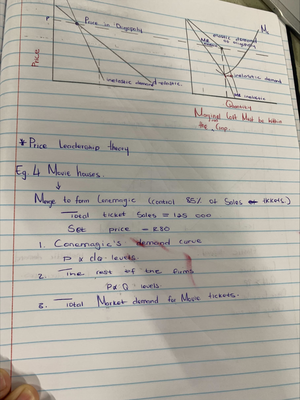 P
Price in Oligopoly
Price
inelastic demand
d-elastic.
MR
elastic
elastic demand
Mc
inelastic demand
MR inelastic
Quantity
Marginal Cost Must be within
the Gap.
* Price Leadership theory
Eg. 4 Movie houses.
Merge to form Conemagic (control 85% of Sales tickets.)
Total ticket Sales = 125 000
Set price - R30
1. Conemagic's demand curve
P x dQ levels
2. The rest of the firms
P x Q levels
3. Total Market demand for Movie tickets.